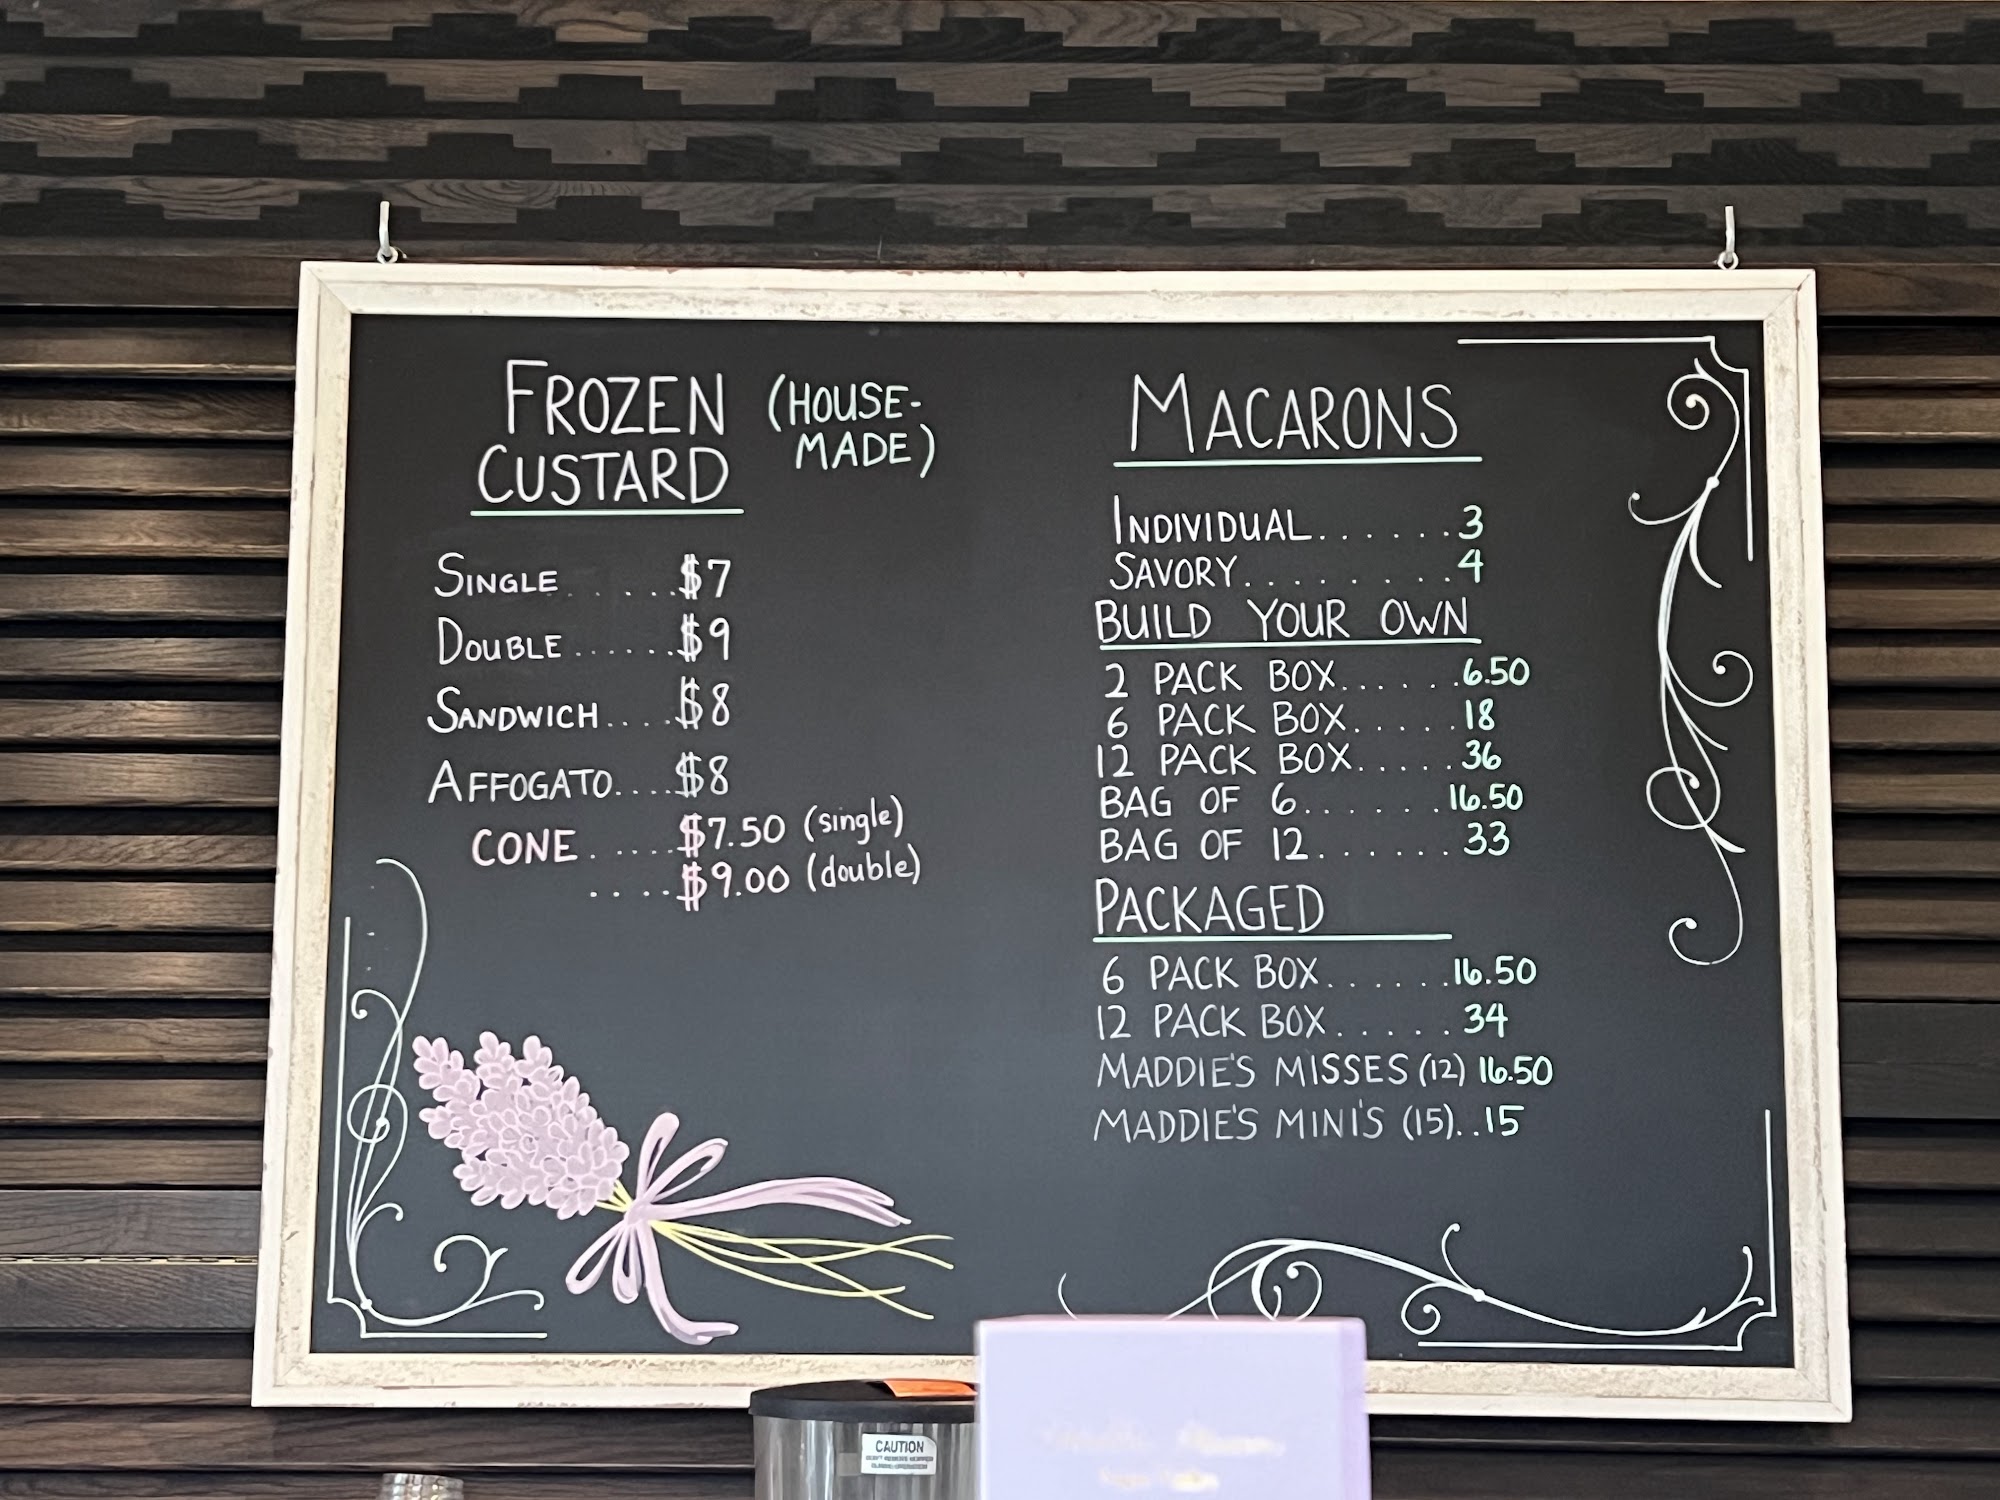 FROZEN (HOUSE-
CUSTARD MADE)
SINGLE......$7
DOUBLE......$9
SANDWICH....$8
AFFOGATO....$8
CONE.....$7.50 (single)
....$9.00 (double)
MACARONS
INDIVIDUAL......3
SAVORY........4
BUILD YOUR OWN
2 PACK BOX......6.50
6 PACK BOX.....18
12 PACK BOX.....36
BAG OF 6......16.50
BAG OF 12......33
PACKAGED
6 PACK BOX......16.50
12 PACK BOX.....34
MADDIE'S MISSES (12) 16.50
MADDIE'S MINI'S (15)..15
CAUTION